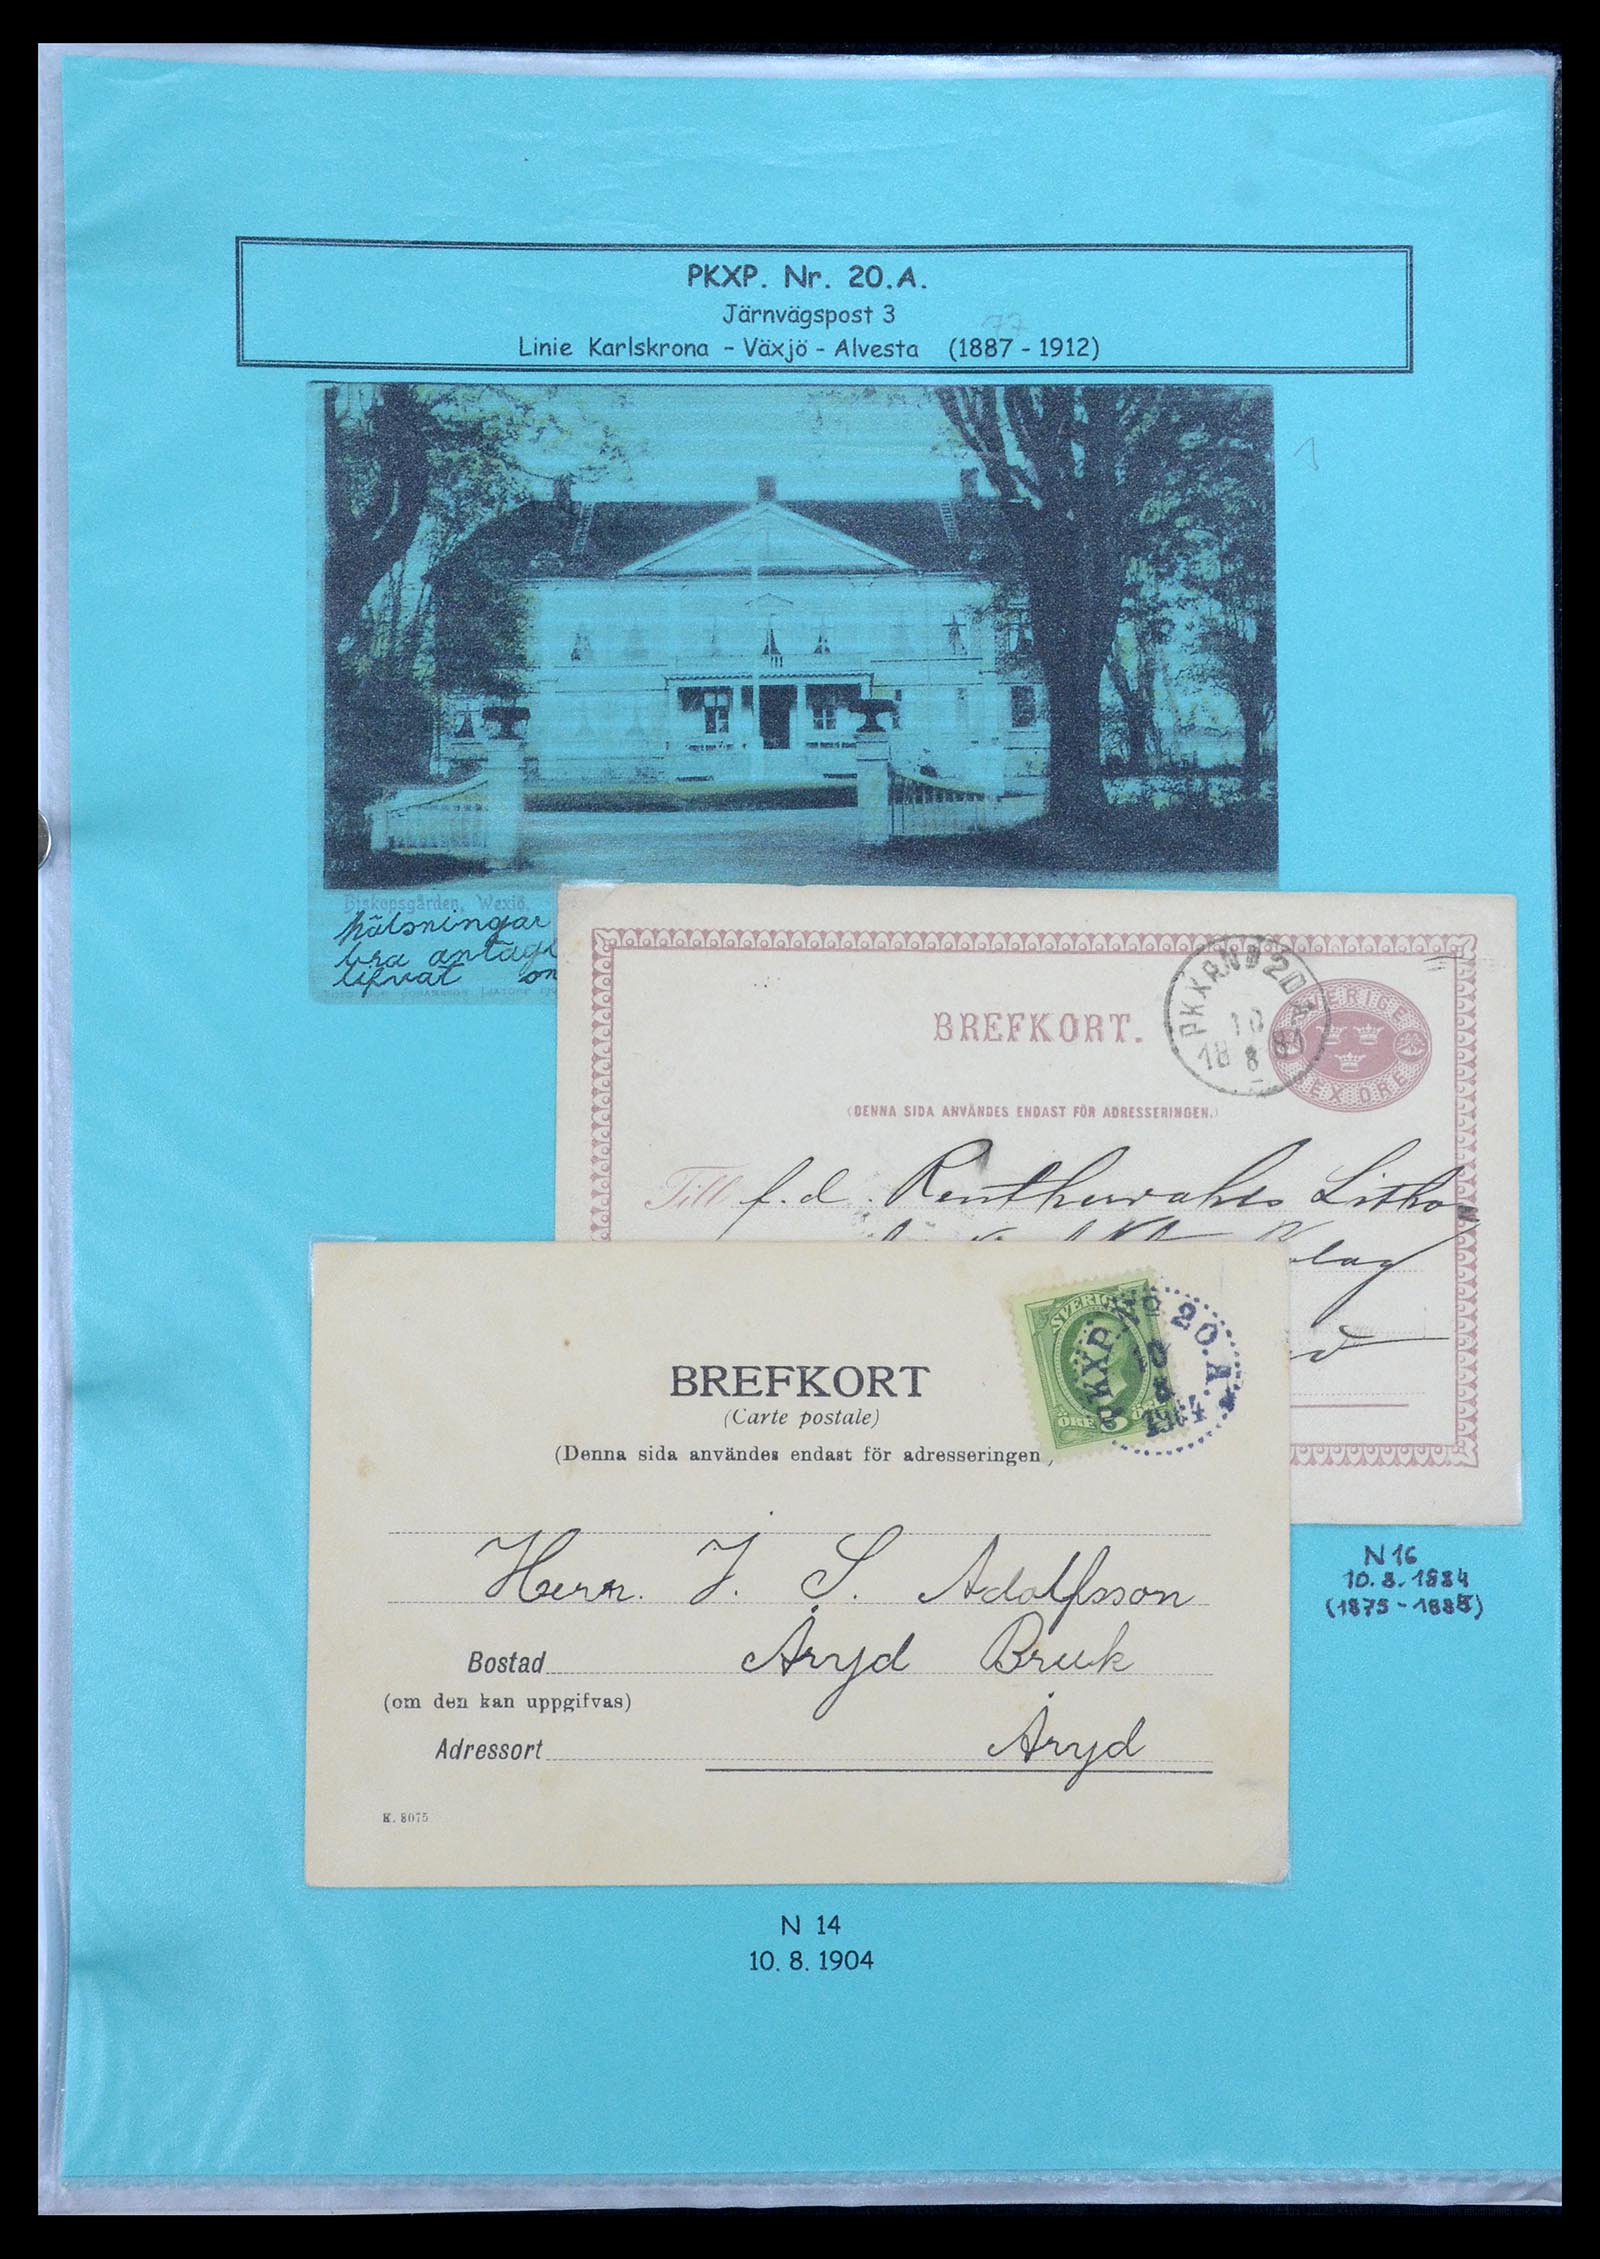 PKXP. Nr. 20.A.
Järnvägspost 3
77
Linie Karlskrona - Växjö - Alvesta (1887 - 1912)
Biskopsgården, Wexiö.
Hälsningar
bra antag
lifvat on
PKXP Nº 20
10
18 8 84
SVERIGE
SEX ÖRE
BREFKORT.
(DENNA SIDA ANVÄNDES ENDAST FÖR ADRESSERINGEN.)
Till f. d. Litho
olag
SVERIGE
ÖRE 5 ÖRE
PKXP Nº 20. A.
10
8
1904
BREFKORT
(Carte postale)
(Denna sida användes endast för adresseringen)
Herr. J. S. Adolfsson
Bostad Åryd Bruk
(om den kan uppgifvas)
Adressort Åryd
K. 8075
N 16
10. 8. 1884
(1875 - 1885)
N 14
10. 8. 1904